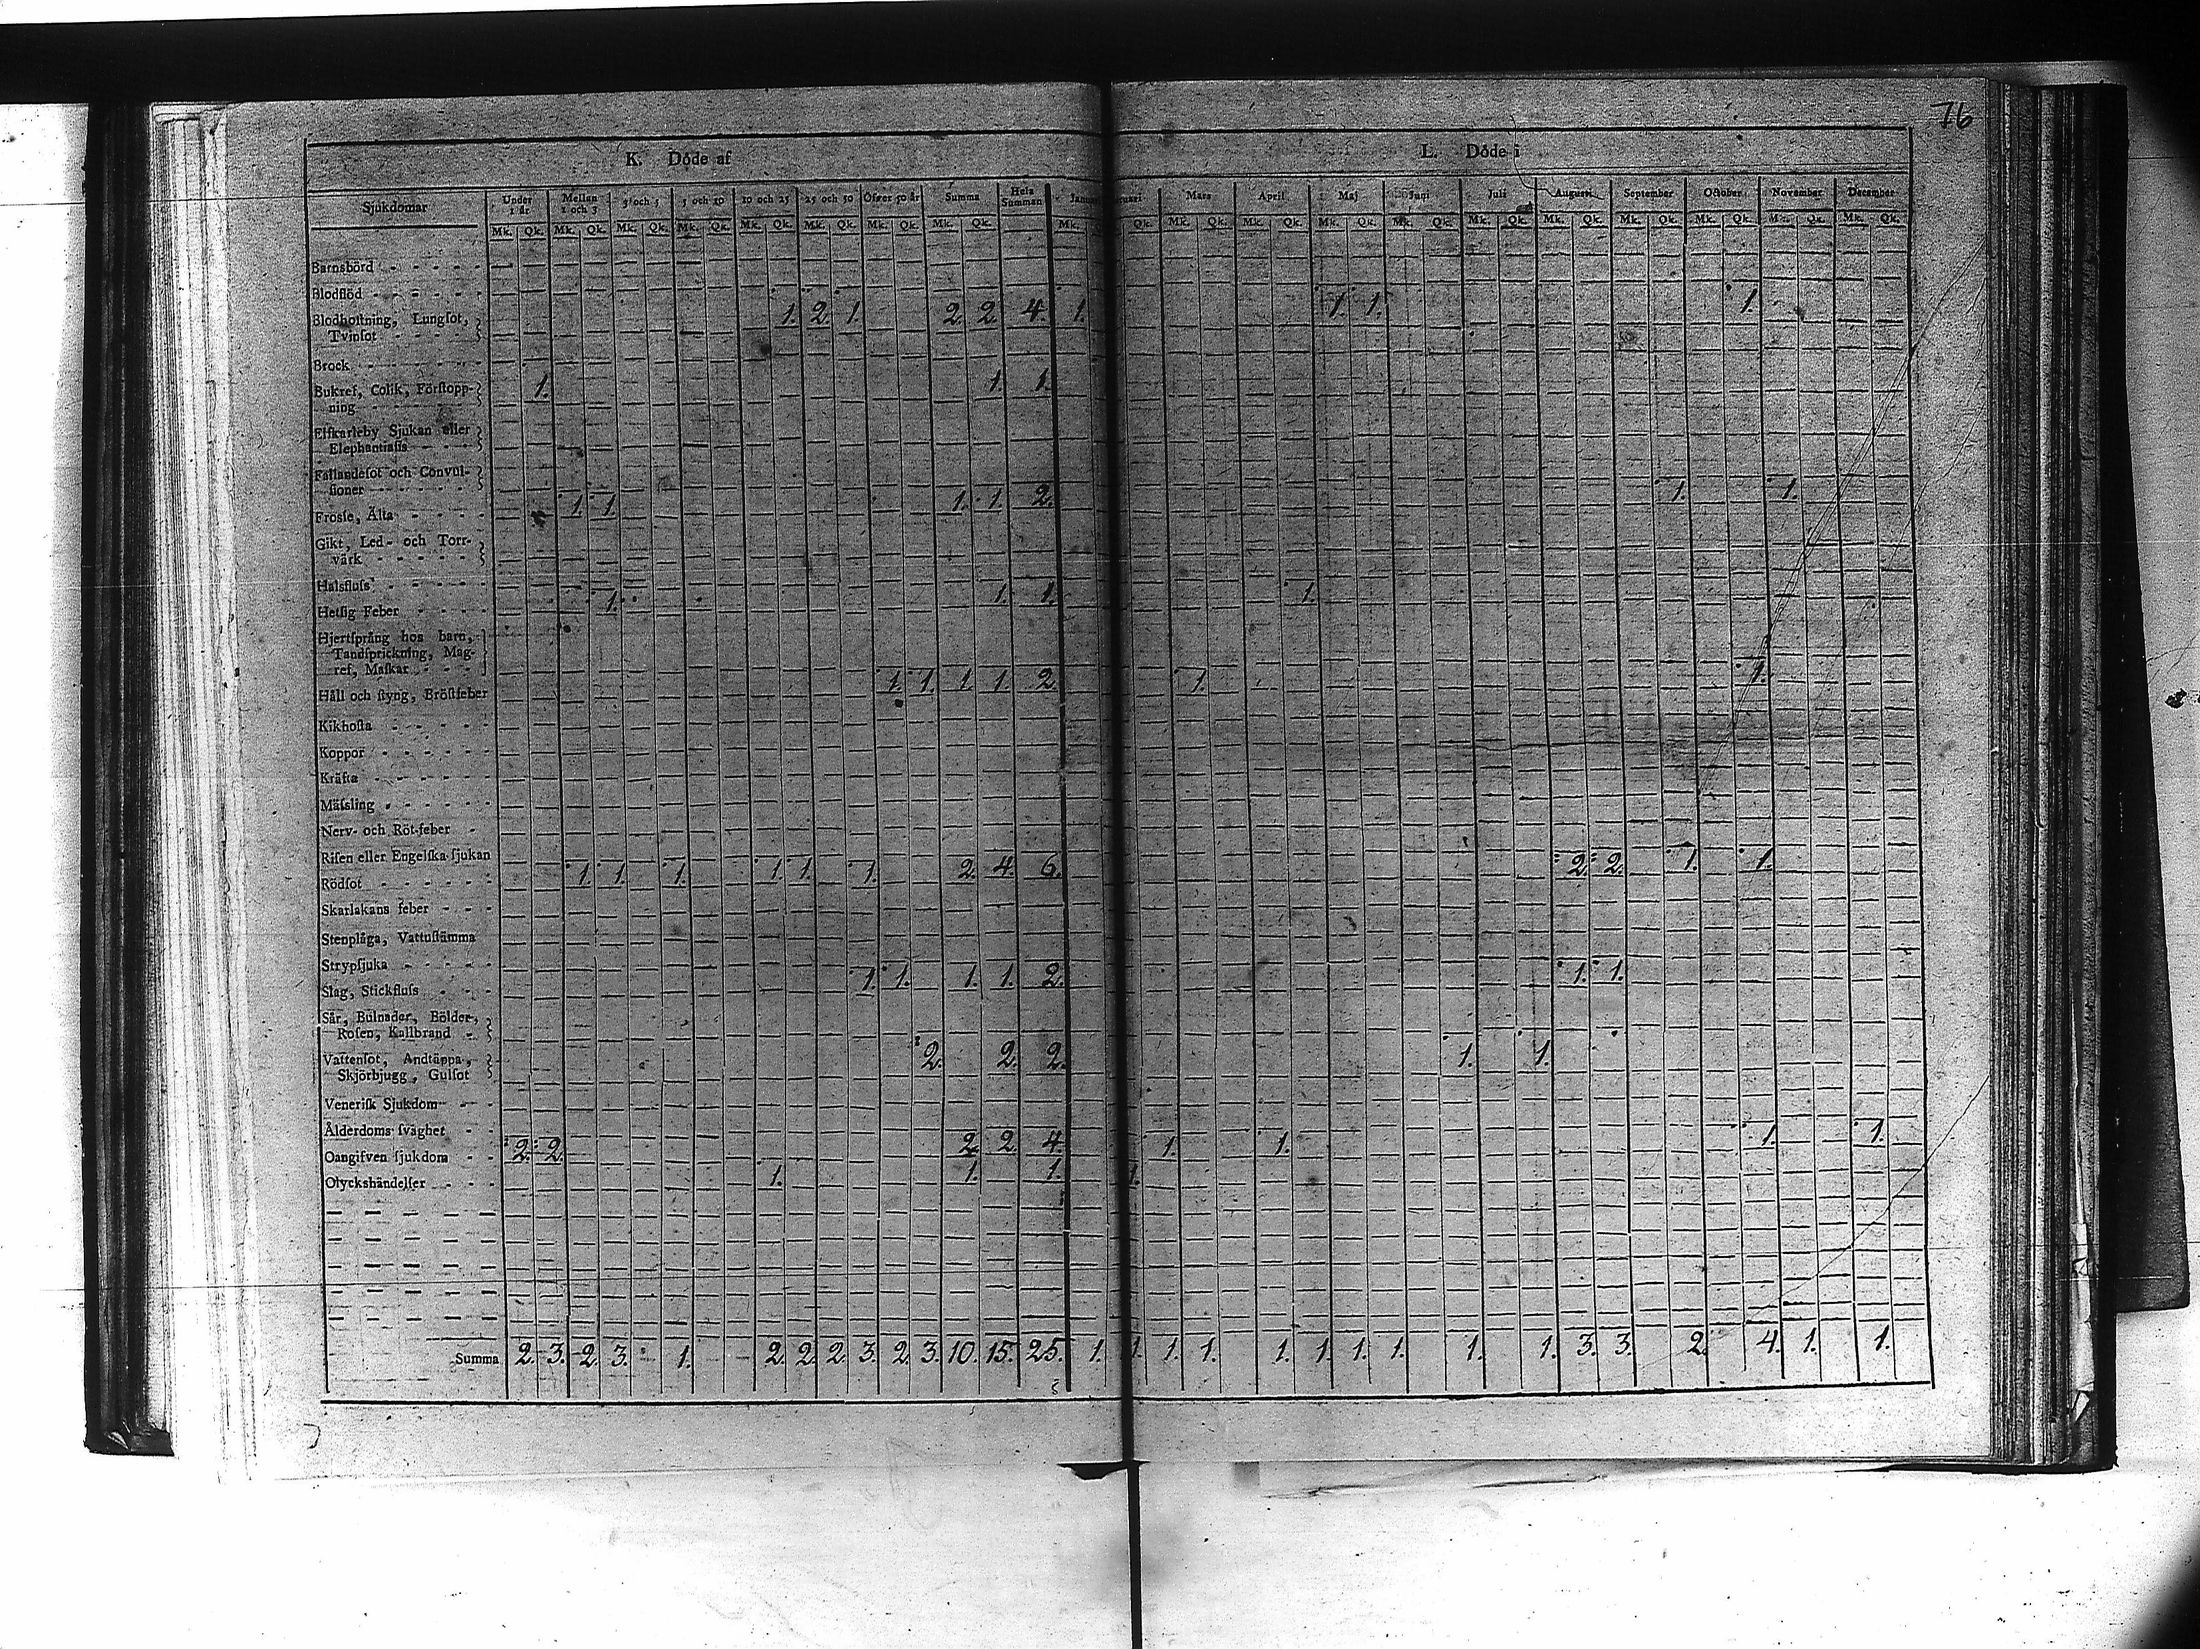 76
K. Döde af
L. Döde i
Sjukdomar Under 1 år Mellan 1 och 3 3 och 5 5 och 10 10 och 25 25 och 50 Öfver 50 år Summa Hela Summan Mars April Maj Juni Juli Augusti September October November December
Mk. Qk. Mk. Qk. Mk. Qk. Mk. Qk. Mk. Qk. Mk. Qk. Mk. Qk. Mk. Qk. Mk. Qk. Mk. Qk. Mk. Qk. Mk. Qk. Mk. Qk. Mk. Qk. Mk. Qk. Mk. Qk. Mk. Qk. Mk. Qk. Mk. Qk.
Barnsbörd
Blodflöd
Blodhostning, Lungsot, 1. 2. 1. 2. 2. 4. 1. 1. 1. 1.
Tvinsot
Brock
Bukref, Colik, Förstopp- 1. 1. 1.
ning
Elfkarleby Sjukan eller
Elephantiasis
Fallandesot och Convul-
sioner
Frosse, Älta 1. 1. 1. 1. 2. 1. 1.
Gikt, Led- och Torr-
värk
Halsfluss
Hetsig Feber 1. 1. 1. 1.
Hjertsprång hos barn,
Tandsprickning, Mag-
ref, Maskar
Håll och styng, Bröstfeber 1. 1. 1. 1. 2. 1. 1.
Kikhosta
Koppor
Kräfta
Mässling
Nerv- och Röt-feber
Risen eller Engelska sjukan
Rödsot 1. 1. 1. 1. 1. 1. 2. 4. 6. 2. 2. 1. 1.
Skarlakans feber
Stenplåga, Vattustämma
Strypsjuka
Slag, Stickfluss 1. 1. 1. 1. 2. 1. 1.
Sår, Bulnader, Bölder,
Rosen, Kallbrand
Vattensot, Andtäppa, 2. 2. 2. 1. 1.
Skjörbjugg, Gulsot
Venerisk Sjukdom
Ålderdoms svaghet
Oangifven sjukdom 2. 2. 2. 2. 4. 1. 1. 1. 1.
Olyckshändelser 1. 1. 1. 1.
Summa 2. 3. 2. 3. 1. 2. 2. 2. 3. 2. 3. 10. 15. 25. 1. 1. 1. 1. 1. 1. 1. 1. 1. 1. 3. 3. 2. 4. 1. 1.